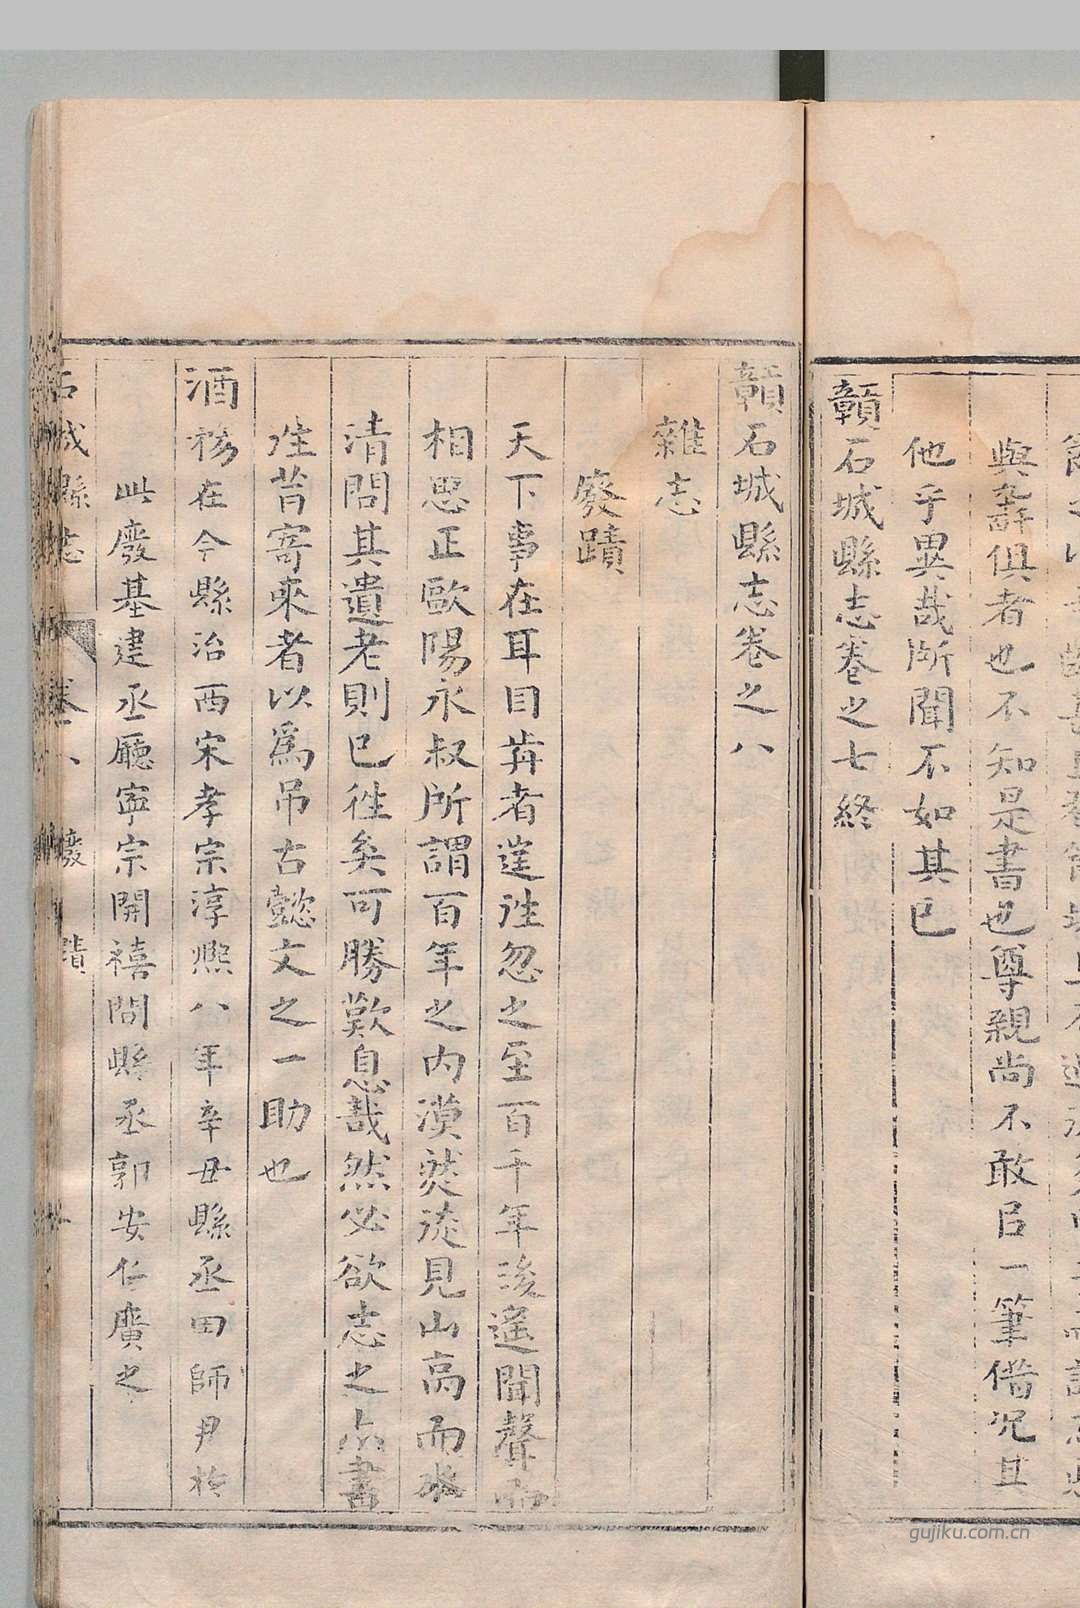 與辭俱者也不知是書也尊親尚不敢㠯一筆借况且
他乎異哉所聞不如其已
贑石城縣志卷之七終
贑石城縣志卷之八
雜志
廢蹟
天下事在耳目前者遑遑忽之至百千年後遙聞聲而
相思正歐陽永叔所謂百年之内漠然徒見山高而水
清問其遺老則已徃矣可勝歎息哉然必欲志之亦書
徃昔寄來者以爲吊古懿文之一助也
酒務在今縣治西宋孝宗淳熙八年辛丑縣丞田師尹於
此廢基建丞廳寧宗開禧間縣丞郭安仁廣之
石城縣志 卷八 廢蹟
gujiku.com.cn